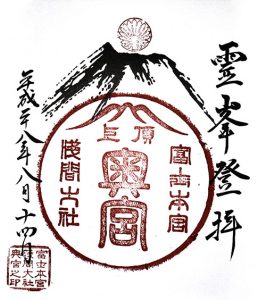 靈峯登拝
頂上
奥宮
富士本宮
浅間大社
平成二十八年八月十四日
富士本宮
浅間大社
奥宮之印